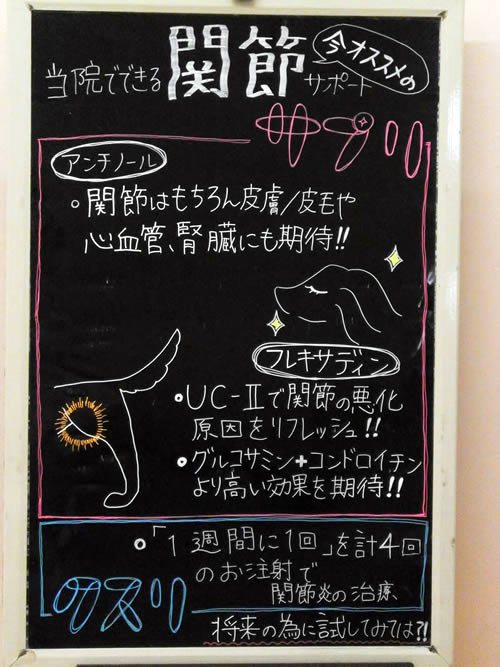 今オススメの
当院でできる関節サポート
サプリ
アンチノール
。関節はもちろん皮膚/皮毛や
心血管、腎臓にも期待!!
フレキサディン
・UC-Ⅱで関節の悪化
原因をリフレッシュ!!
・グルコサミン+コンドロイチン
より高い効果を期待!!
。「1週間に1回」を計4回
のお注射で
関節炎の治療、
クスリ
将来の為に試してみては?!